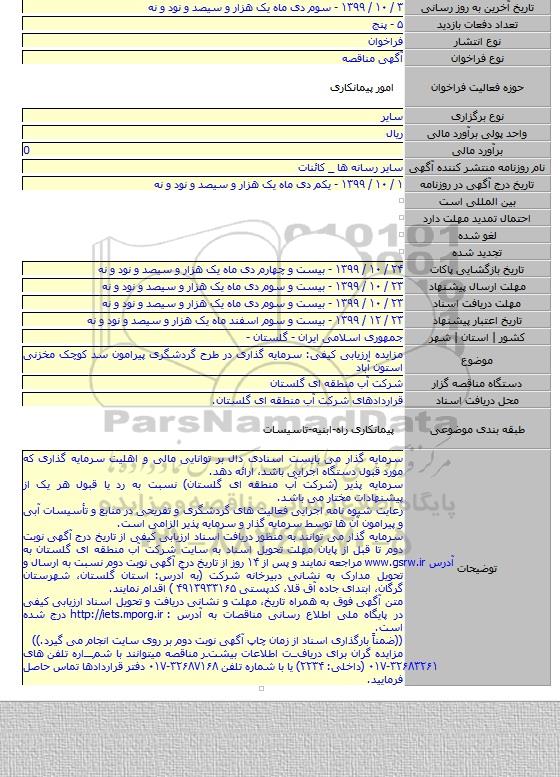 تاریخ آخرین به روز رسانی ۳ / ۱۰ / ۱۳۹۹ - سوم دی ماه یک هزار و سیصد و نود و نه
تعداد دفعات بازدید ۵ - پنج
نوع انتشار فراخوان
نوع فراخوان آگهی مناقصه
حوزه فعالیت فراخوان امور پیمانکاری
نوع برگزاری سایر
واحد پولی برآورد مالی ریال
برآورد مالی 0
نام روزنامه منتشر کننده آگهی سایر رسانه ها _ کائنات
تاریخ درج آگهی در روزنامه ۱ / ۱۰ / ۱۳۹۹ - یکم دی ماه یک هزار و سیصد و نود و نه
بین المللی است
احتمال تمدید مهلت دارد
لغو شده
تجدید شده
تاریخ بازگشایی پاکات ۲۴ / ۱۰ / ۱۳۹۹ - بیست و چهارم دی ماه یک هزار و سیصد و نود و نه
مهلت ارسال پیشنهاد ۲۳ / ۱۰ / ۱۳۹۹ - بیست و سوم دی ماه یک هزار و سیصد و نود و نه
مهلت دریافت اسناد ۲۳ / ۱۰ / ۱۳۹۹ - بیست و سوم دی ماه یک هزار و سیصد و نود و نه
تاریخ اعتبار پیشنهاد ۲۳ / ۱۲ / ۱۳۹۹ - بیست و سوم اسفند ماه یک هزار و سیصد و نود و نه
کشور | استان | شهر جمهوری اسلامی ایران - گلستان -
موضوع مزایده ارزیابی کیفی: سرمایه گذاری در طرح گردشگری پیرامون سد کوچک مخزنی
استون آباد
دستگاه مناقصه گزار شرکت آب منطقه ای گلستان
محل دریافت اسناد قراردادهای شرکت آب منطقه ای گلستان.
طبقه بندی موضوعی پیمانکاری راه-ابنیه-تاسیسات
ParsNamadData
توضیحات
سرمایه گذار می بایست اسنادی دال بر توانایی مالی و اهلیت سرمایه گذاری که
مورد قبول دستگاه اجرایی باشد، ارائه دهد.
سرمایه پذیر (شرکت آب منطقه ای گلستان) نسبت به رد یا قبول هر یک از
پیشنهادات مختار می باشد.
رعایت شیوه نامه اجرایی فعالیت های گردشگری و تفریحی در منابع و تأسیسات آبی
و پیرامون آن ها توسط سرمایه گذار و سرمایه پذیر الزامی است.
سرمایه گذار می توانند به منظور دریافت اسناد ارزیابی کیفی از تاریخ درج آگهی نوبت
دوم تا قبل از پایان مهلت تحویل اسناد به سایت شرکت آب منطقه ای گلستان به
آدرس www.gsrw.ir مراجعه نمایند و پس از ۱۴ روز از تاریخ درج آگهی نوبت دوم نسبت به ارسال و
تحویل مدارک به نشانی دبیرخانه شرکت (به آدرس: استان گلستان، شهرستان
گرگان، ابتدای جاده آق قلا، کدپستی ۴۹۱۳۹۳۳۱۶۵ ) اقدام نمایند.
متن آگهی فوق به همراه تاریخ، مهلت و نشانی دریافت و تحویل اسناد ارزیابی کیفی
در پایگاه ملی اطلاع رسانی مناقصات به آدرس : http://iets.mporg.ir درج شده
است.
((ضمناً بارگذاری اسناد از زمان چاپ آگهی نوبت دوم بر روی سایت انجام می گیرد.))
مزایده گران برای دریافـت اطلاعات بیشتـر مناقصه میتوانند با شمـــاره تلفن های
۰۱۷-۳۲۶۸۳۲۶۱ (داخلی: ۲۲۳۴) یا با شماره تلفن ۳۲۶۸۷۱۶۸-۰۱۷ دفتر قراردادها تماس حاصل
فرمایید.